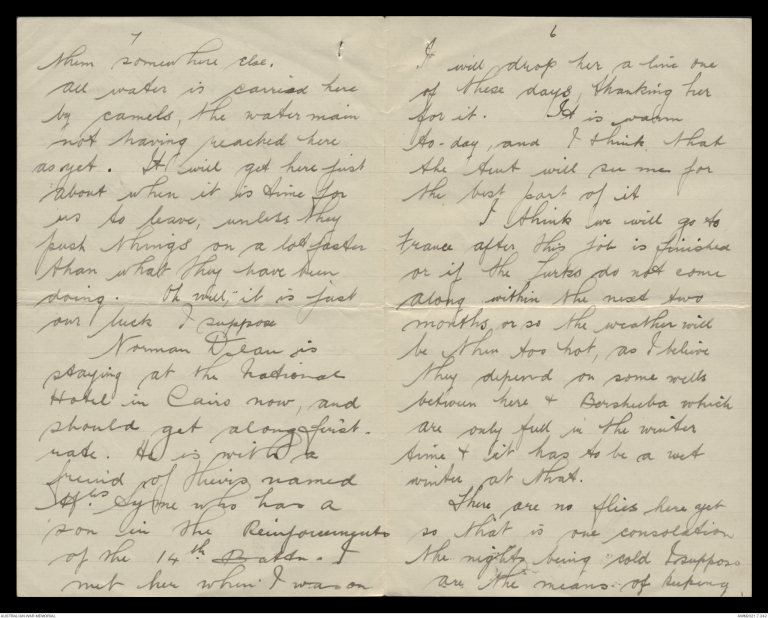 6
I will drop her a line one
of these days, thanking her
for it. It is warm
to-day, and I think that
the tent will see me for
the best part of it
I think we will go to
France after this job is finished
or if the Turks do not come
along within the next two
months or so the weather will
be then too hot, as I believe
they depend on some wells
between here & Bersheeba which
are only fed in the winter
time & it has to be a wet
winter at that.
There are no flies here yet
so that is one consolation
the nights being cold I suppose
are the means of keeping
7
them somewhere else.
All water is carried here
by camels, the water main
not having reached here
as yet. It will get here just
about when it is time for
us to leave, unless they
push things on a lot faster
than what they have been
doing. Oh well, it is just
our luck I suppose
Norman is
staying at the National
Hotel in Cairo now, and
should get along first-
rate. He is with a
freind of theirs named
Syme who has a
son in the Reinforcements
of the 14th Battn. I
met her when I was on
AUSTRALIAN WAR MEMORIAL